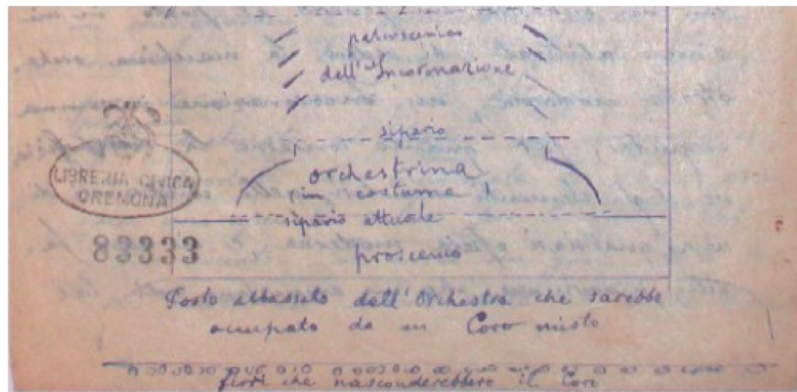 palcoscenico
dell'Incoronazione
sipario
orchestrina
(in costume)
sipario attuale
LIBRERIA CIVICA
CREMONA
83333
proscenio
Posto abbassato dell'Orchestra che sarebbe
occupato da un Coro misto
fiori che nasconderebbero il Coro